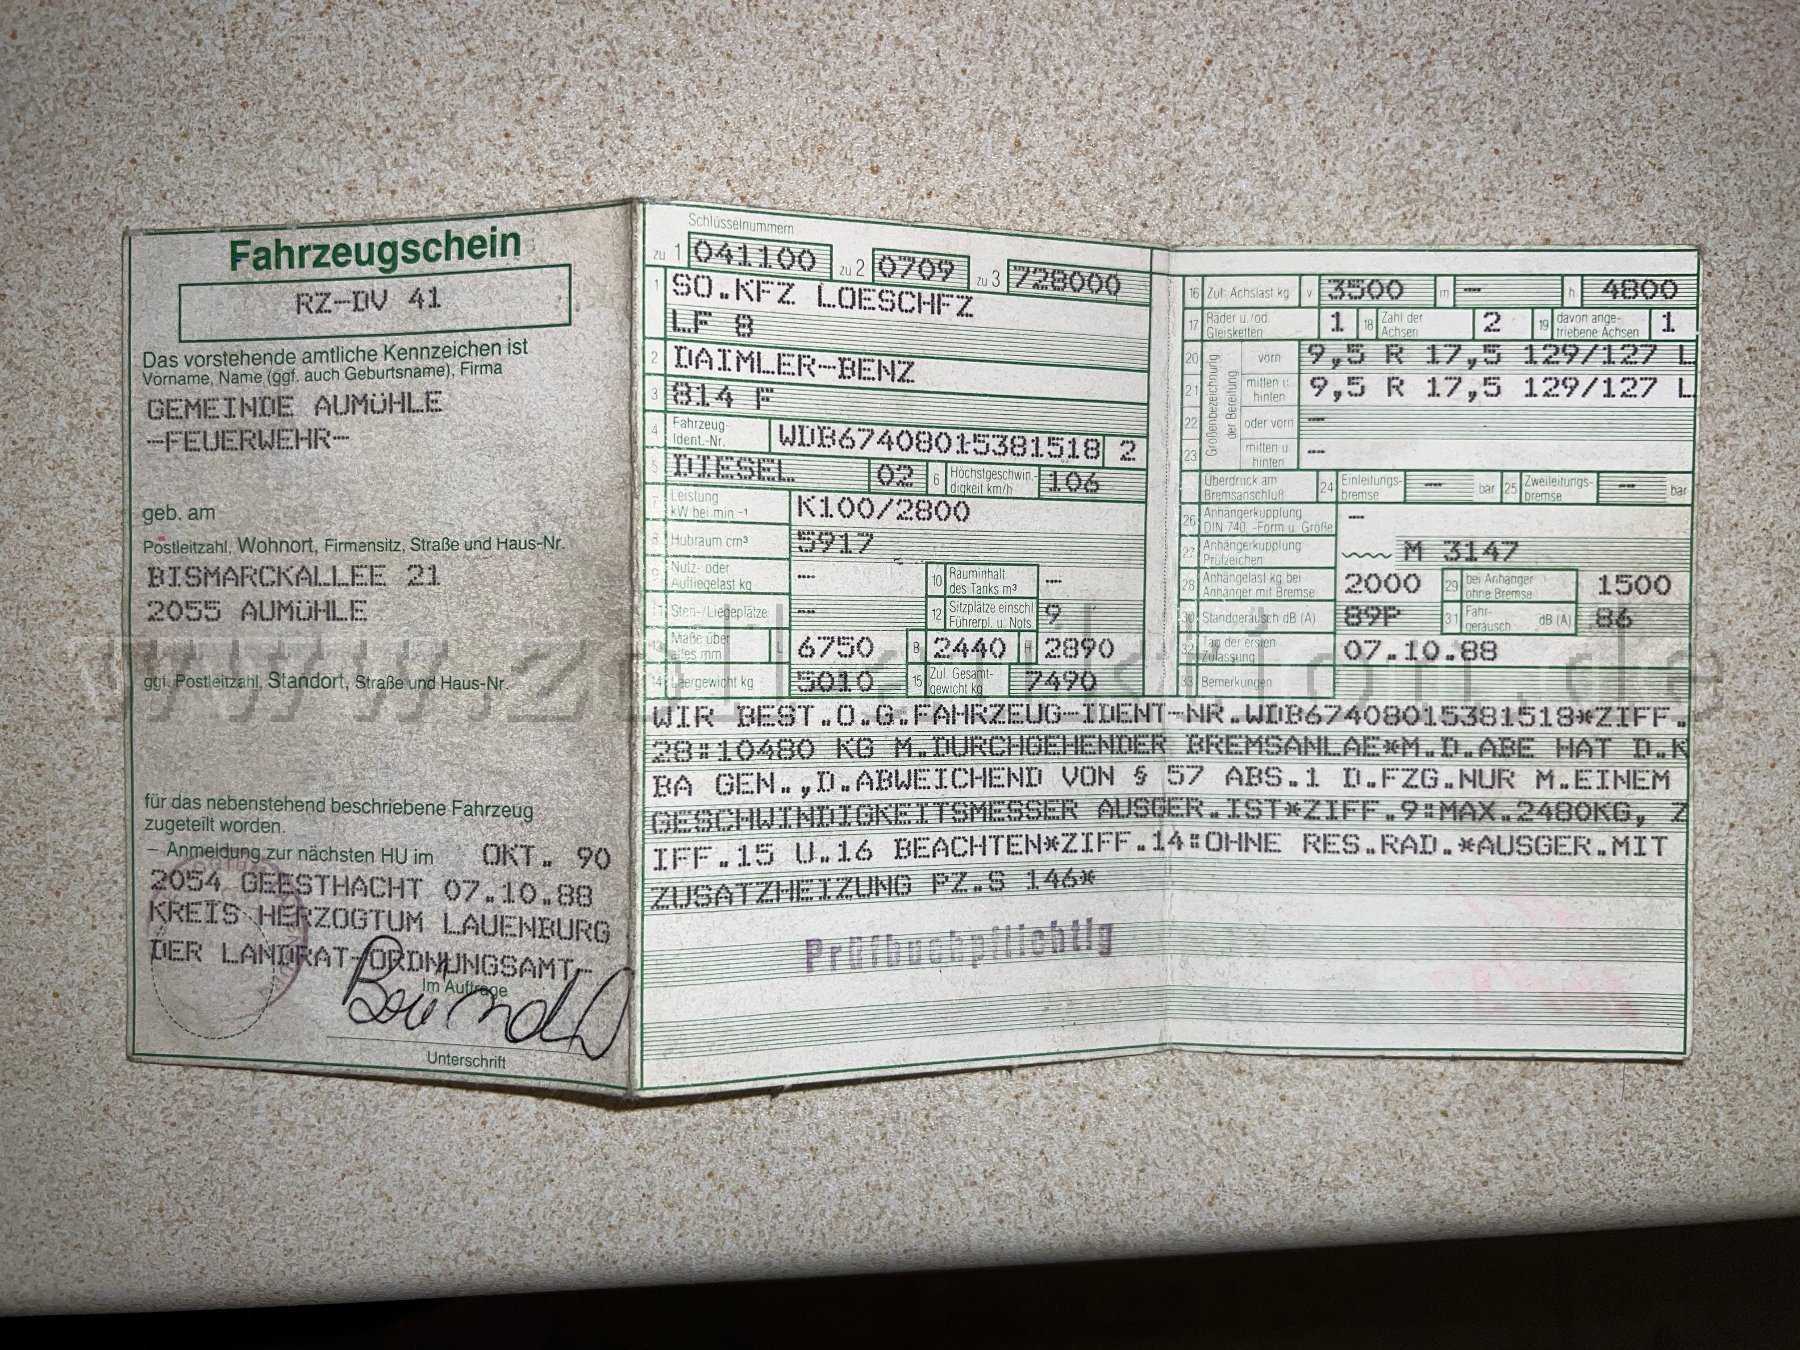 Fahrzeugschein
RZ-DV 41
Das vorstehende amtliche Kennzeichen ist
Vorname, Name (ggf. auch Geburtsname), Firma
GEMEINDE AUMÜHLE
-FEUERWEHR-
geb. am
Postleitzahl, Wohnort, Firmensitz, Straße und Haus-Nr.
BISMARCKALLEE 21
2055 AUMÜHLE
ggf. Postleitzahl, Standort, Straße und Haus-Nr.
für das nebenstehend beschriebene Fahrzeug
zugeteilt worden.
– Anmeldung zur nächsten HU im OKT. 90
2054 GEESTHACHT 07.10.88
KREIS HERZOGTUM LAUENBURG
DER LANDRAT-ORDNUNGSAMT-
Im Auftrage
Unterschrift
Schlüsselnummern
zu 1 041100 zu 2 0709 zu 3 728000
1 SO.KFZ LOESCHFZ
LF 8
2 DAIMLER-BENZ
3 814 F
4 Fahrzeug-Ident.-Nr. WDB67408015381518 2
5 DIESEL 02 6 Höchstgeschwindigkeit km/h 106
7 Leistung kW bei min -1 K100/2800
8 Hubraum cm³ 5917
9 Nutz- oder Aufliegelast kg -- 10 Rauminhalt des Tanks m³ --
11 Steh-/Liegeplätze -- 12 Sitzplätze einschl. Führerpl. u. Nots. 9
13 Maße über alles mm L 6750 B 2440 H 2890
14 Leergewicht kg 5010 15 Zul. Gesamtgewicht kg 7490
16 Zul. Achslast kg v 3500 m -- h 4800
17 Räder u./od. Gleisketten 1 18 Zahl der Achsen 2 19 davon angetriebene Achsen 1
Größenbezeichnung der Bereifung
20 vorn 9,5 R 17,5 129/127 L
21 mitten u. hinten 9,5 R 17,5 129/127 L
22 oder vorn --
23 mitten u. hinten --
Überdruck am Bremsanschluß 24 Einleitungsbremse -- bar 25 Zweileitungsbremse -- bar
26 Anhängerkupplung DIN 740..-Form u. Größe --
27 Anhängerkupplung Prüfzeichen M 3147
28 Anhängelast kg bei Anhänger mit Bremse 2000 29 bei Anhänger ohne Bremse 1500
30 Standgeräusch dB (A) 89P 31 Fahrgeräusch dB (A) 86
32 Tag der ersten Zulassung 07.10.88
33 Bemerkungen
WIR BEST.O.G.FAHRZEUG-IDENT-NR.WDB67408015381518*ZIFF.
28:10480 KG M.DURCHGEHENDER BREMSANLAE*M.D.ABE HAT D.K
BA GEN.,D.ABWEICHEND VON § 57 ABS.1 D.FZG.NUR M.EINEM
GESCHWINDIGKEITSMESSER AUSGER.IST*ZIFF.9:MAX.2480KG, Z
IFF.15 U.16 BEACHTEN*ZIFF.14:OHNE RES.RAD.*AUSGER.MIT
ZUSATZHEIZUNG PZ.S 146*
Prüfbuchpflichtig
www.zoll-auktion.de